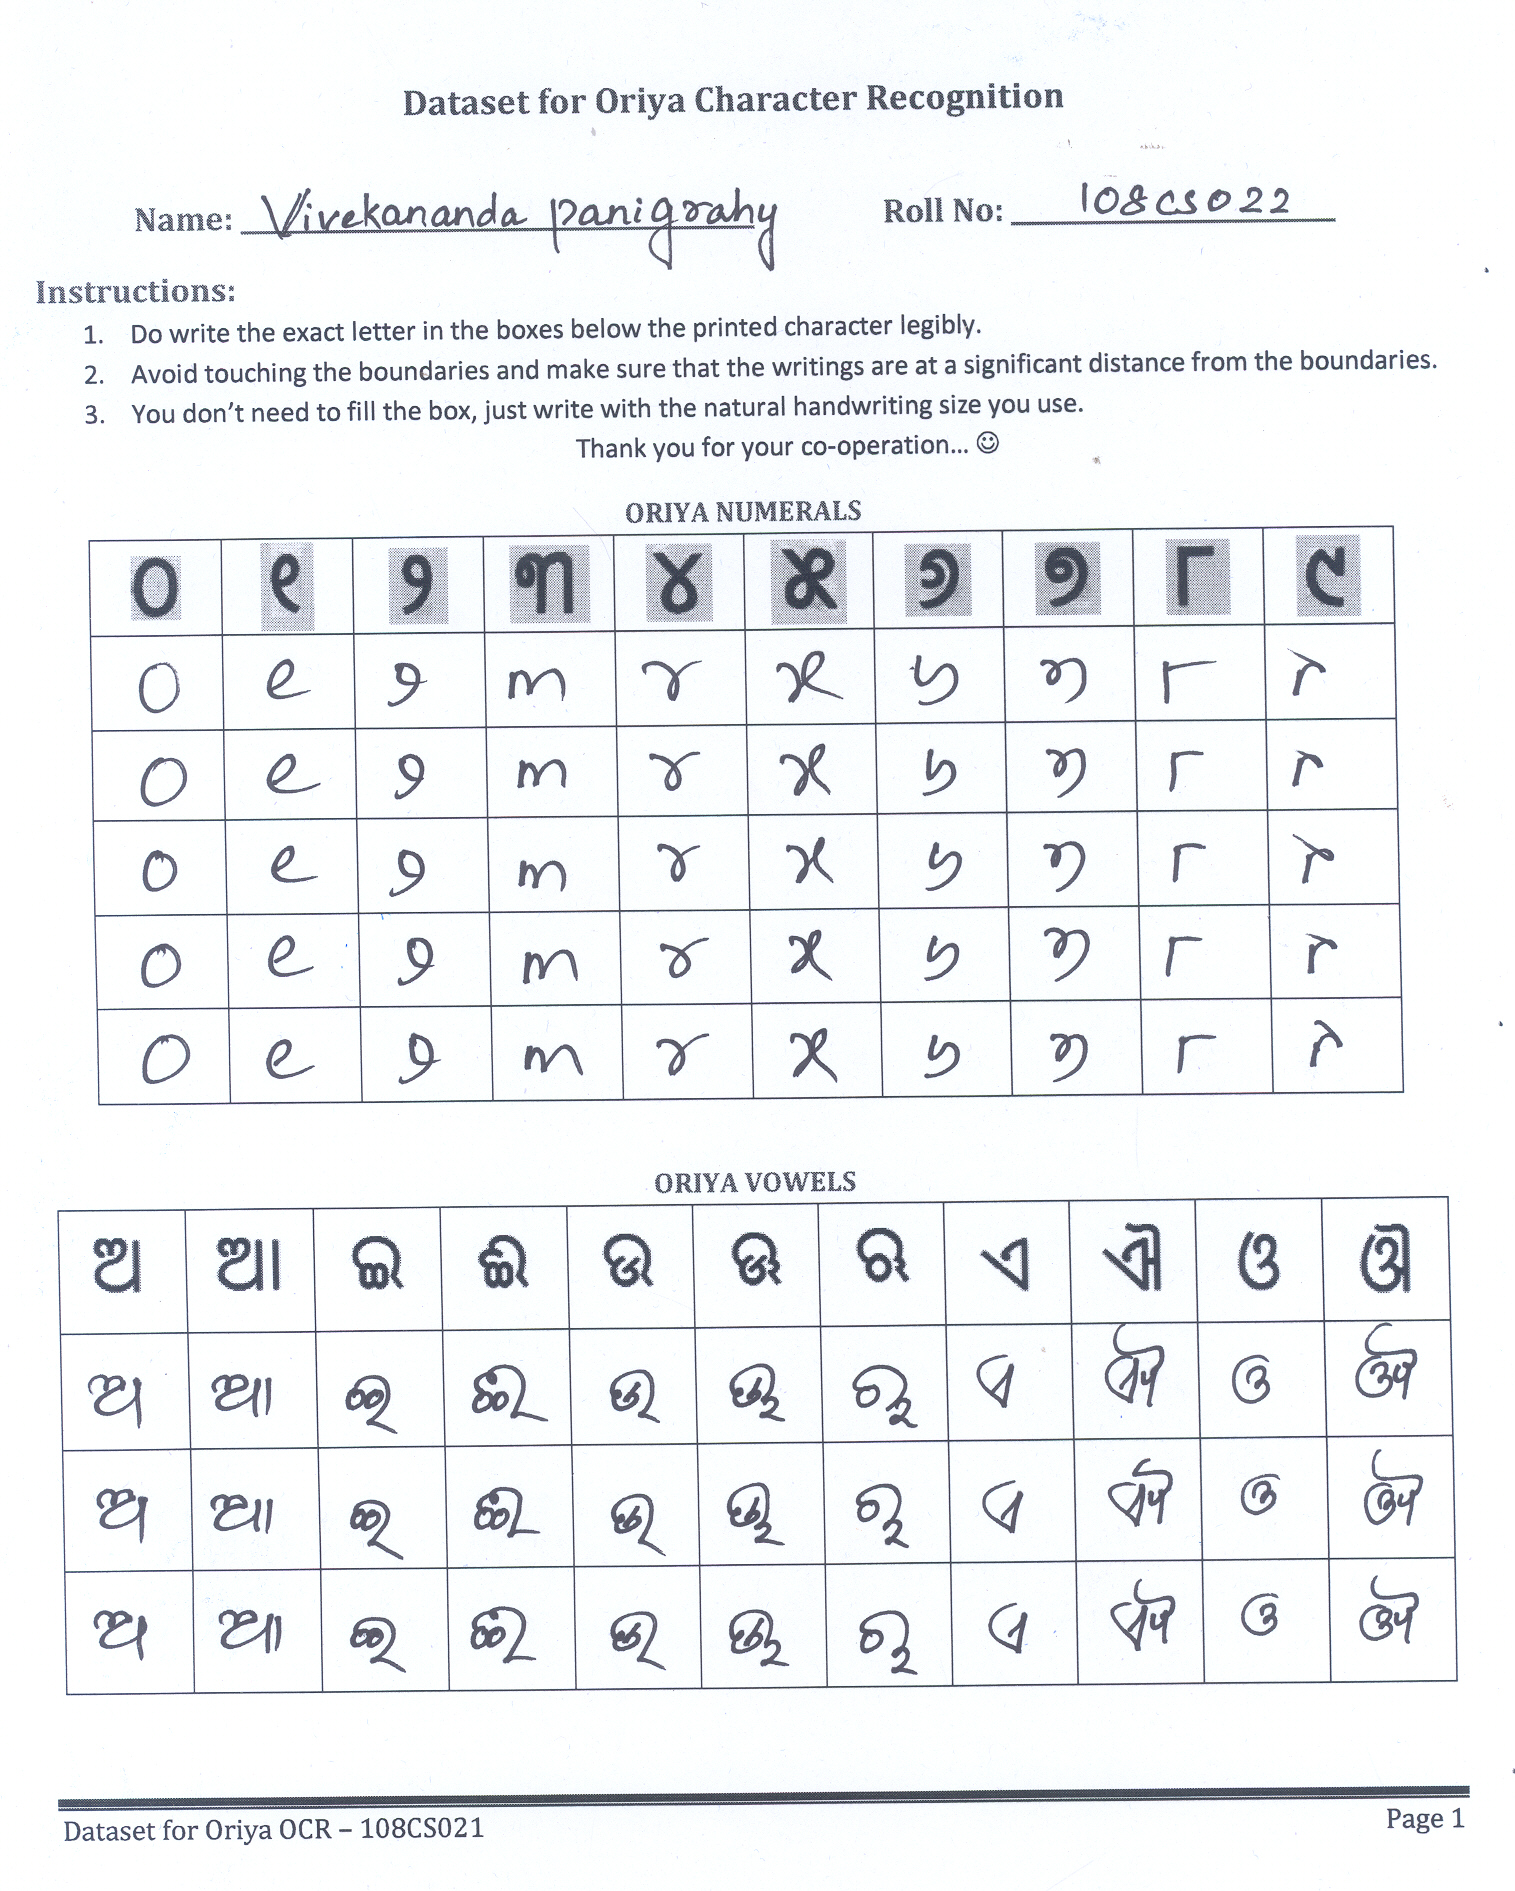 Dataset for Oriya Character Recognition
Name: Vivekananda Panigrahy Roll No: 108CS022
Instructions:
1. Do write the exact letter in the boxes below the printed character legibly.
2. Avoid touching the boundaries and make sure that the writings are at a significant distance from the boundaries.
3. You don't need to fill the box, just write with the natural handwriting size you use.
Thank you for your co-operation... ☺
ORIYA NUMERALS
୦ ୧ ୨ ୩ ୪ ୫ ୬ ୭ ୮ ୯
୦ ୧ ୨ ୩ ୪ ୫ ୬ ୭ ୮ ୯
୦ ୧ ୨ ୩ ୪ ୫ ୬ ୭ ୮ ୯
୦ ୧ ୨ ୩ ୪ ୫ ୬ ୭ ୮ ୯
୦ ୧ ୨ ୩ ୪ ୫ ୬ ୭ ୮ ୯
୦ ୧ ୨ ୩ ୪ ୫ ୬ ୭ ୮ ୯
ORIYA VOWELS
ଅ ଆ ଇ ଈ ଉ ଊ ଋ ଏ ଐ ଓ ଔ
ଅ ଆ ଇ ଈ ଉ ଊ ଋ ଏ ଐ ଓ ଔ
ଅ ଆ ଇ ଈ ଉ ଊ ଋ ଏ ଐ ଓ ଔ
ଅ ଆ ଇ ଈ ଉ ଊ ଋ ଏ ଐ ଓ ଔ
Dataset for Oriya OCR – 108CS021 Page 1